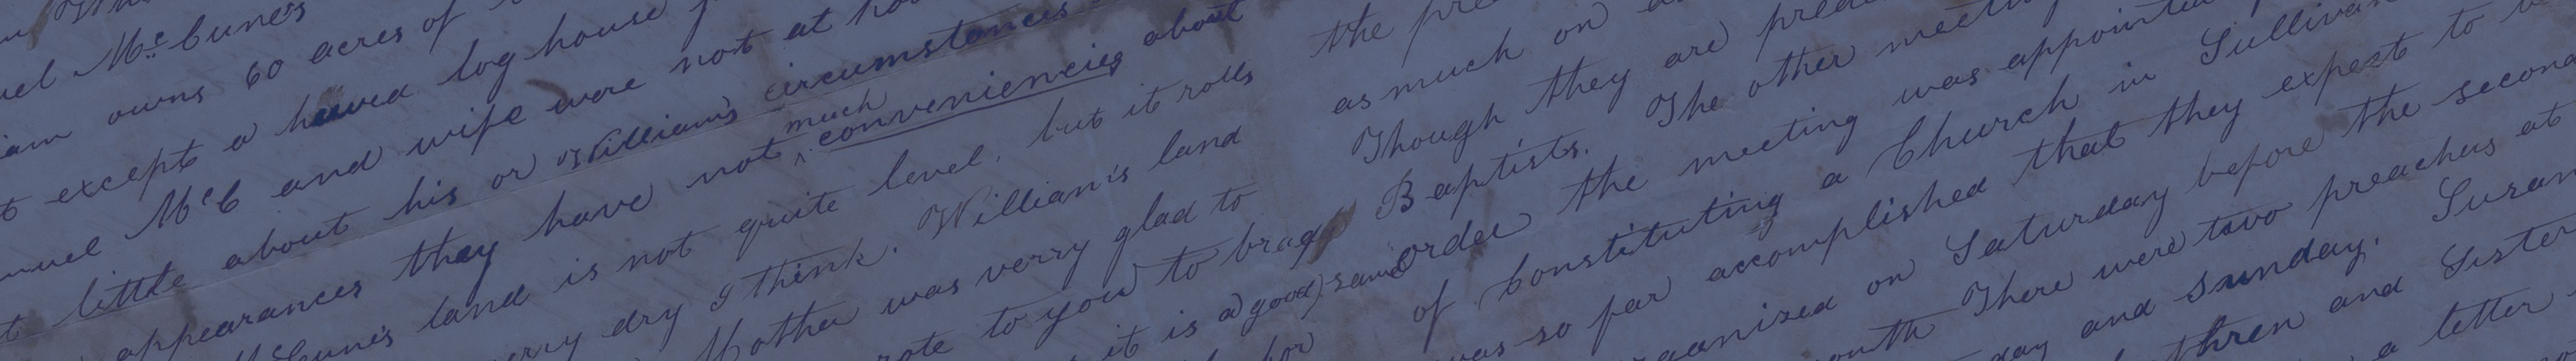 uel Mc.Cune's
iam owns 60 acres of
t except a hewed log house
muel McC and wife were not at ho
t little about his or William's circumstances
appearances they have not much conveniencies about
McCune's land is not quite level, but it rolls
verry dry I think. William's land
Mother was verry glad to
rote to you to brag
it is a good
the pre
as much on
Though they are pred
Baptists. The other meeti
order the meeting was appointed
of Constituting a Church in Sullivan
was so far accomplished that they expect to b
rganized on Saturday before the second
outh There were two preachers at
day and sunday. Susan
thren and Sister
a letter